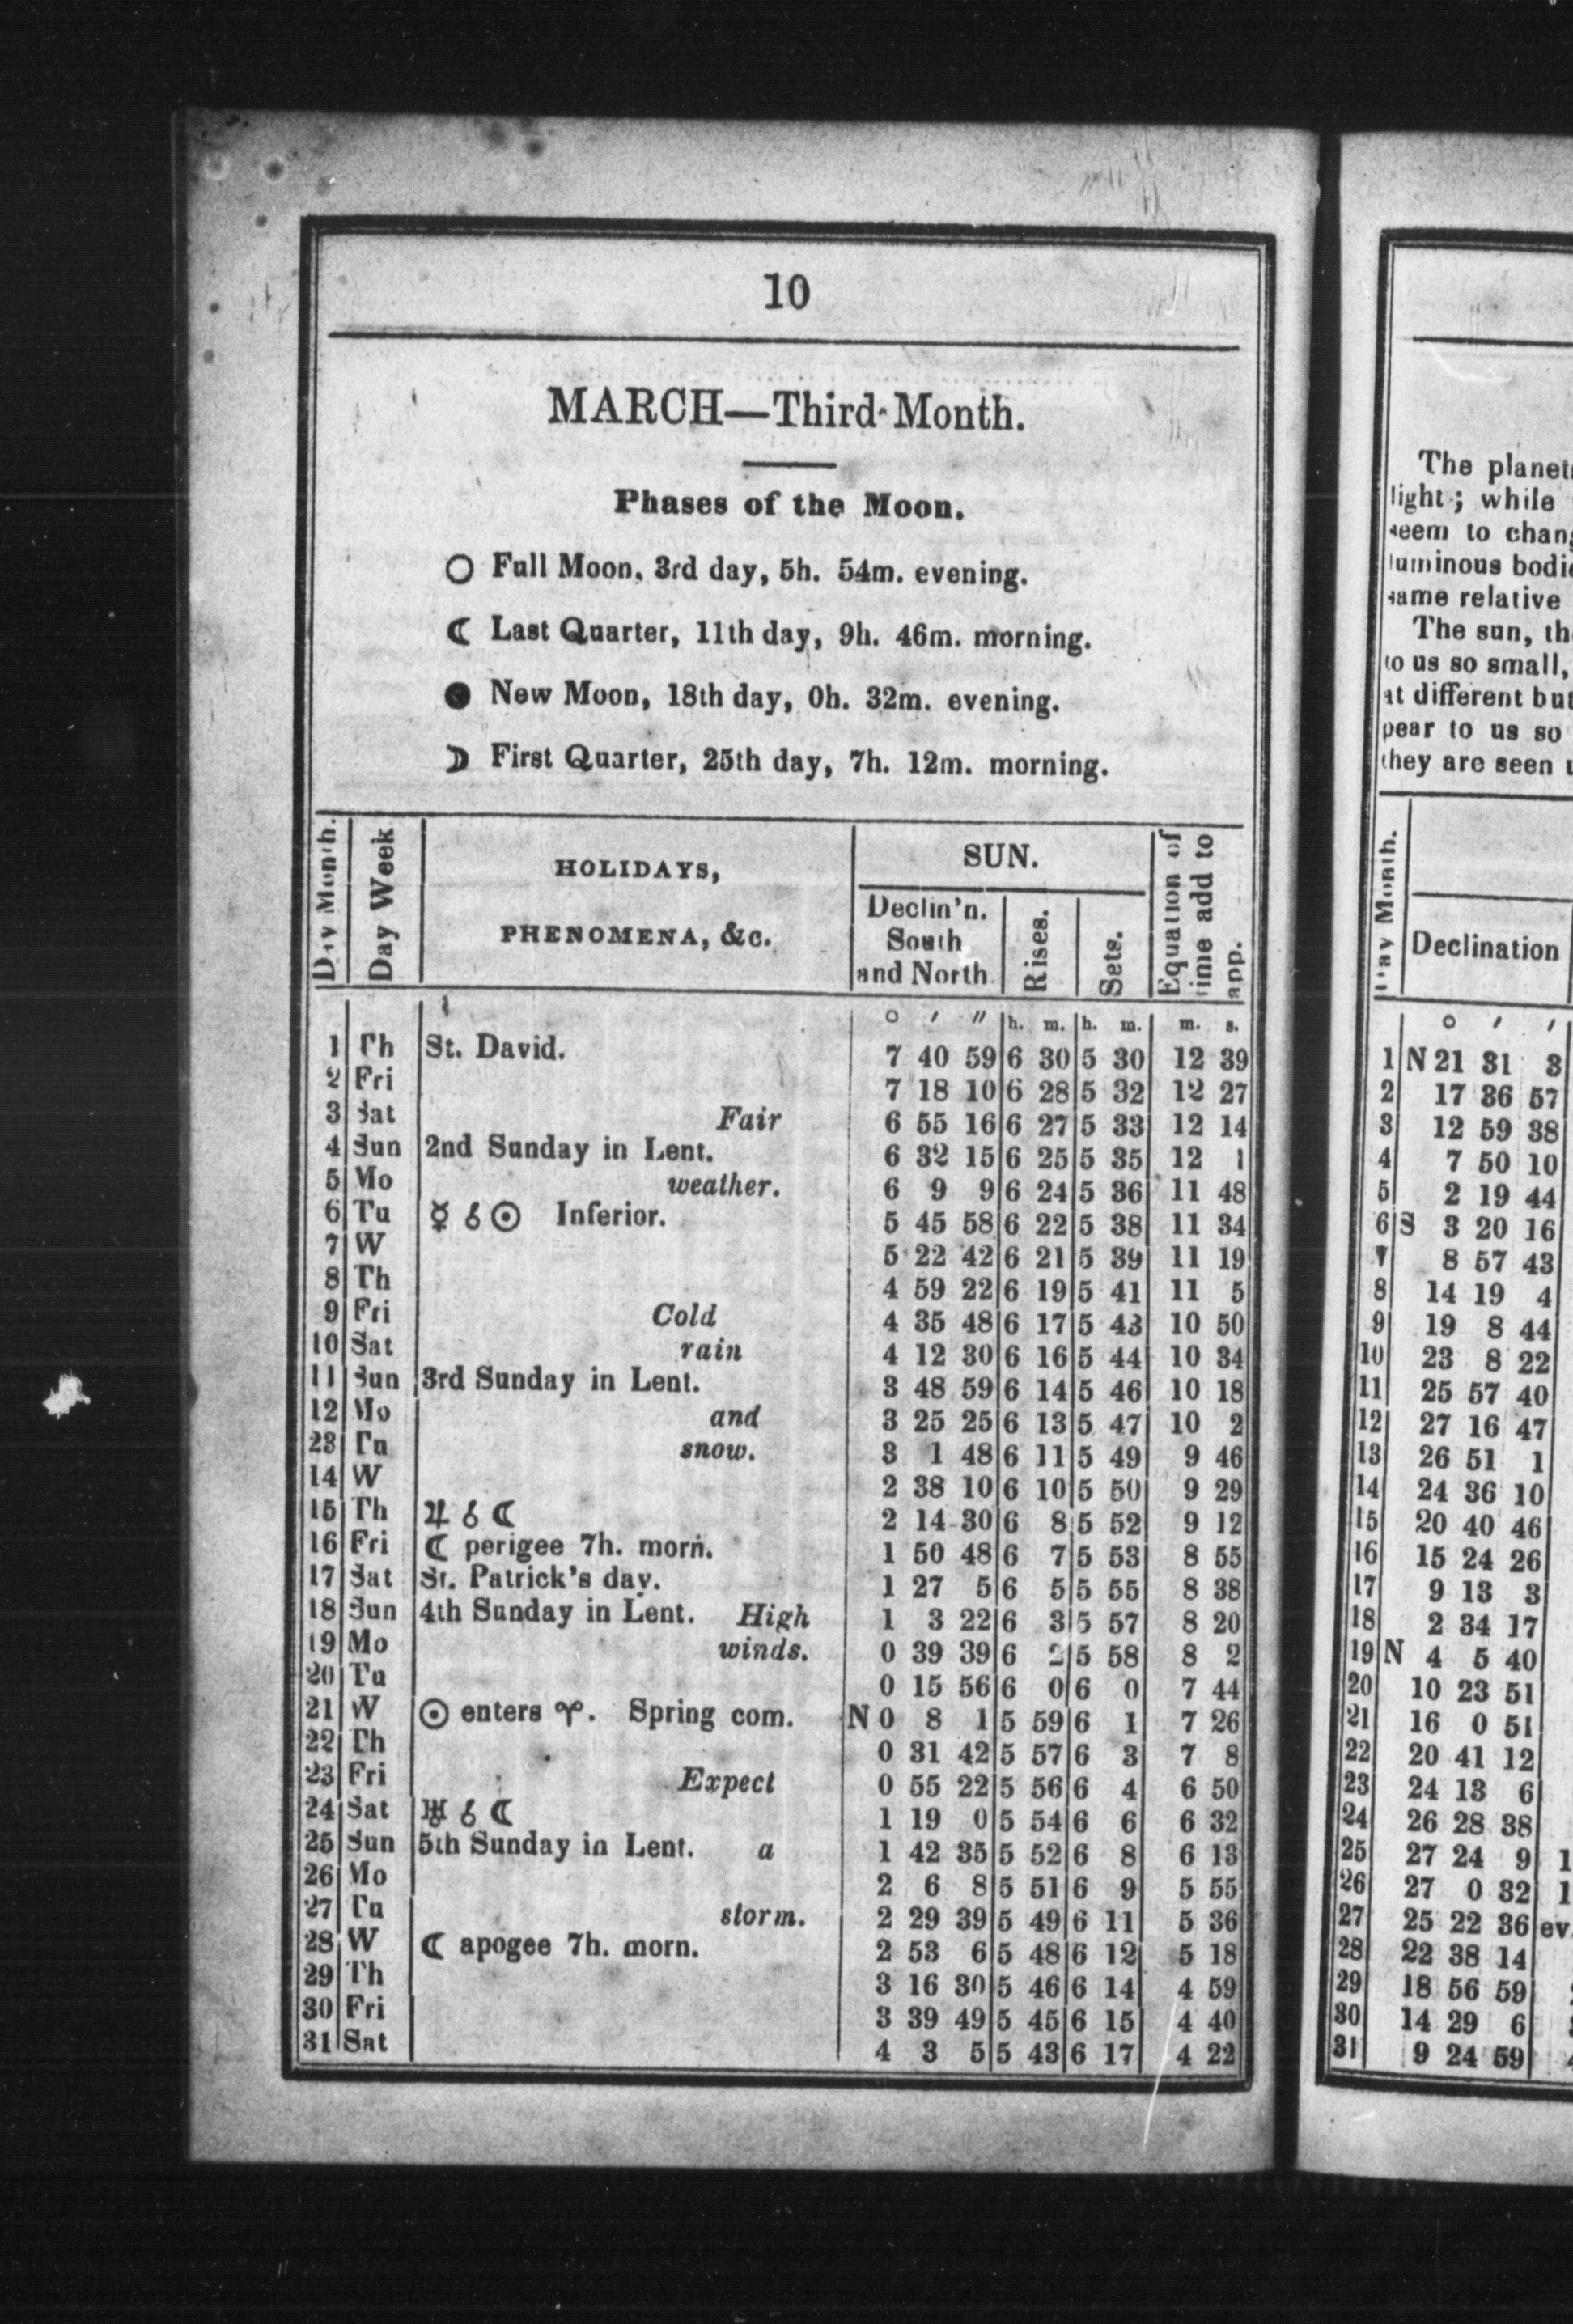 10
MARCH—Third-Month.
Phases of the Moon.
○ Full Moon, 3rd day, 5h. 54m. evening.
☾ Last Quarter, 11th day, 9h. 46m. morning.
● New Moon, 18th day, 0h. 32m. evening.
☽ First Quarter, 25th day, 7h. 12m. morning.
Day Month. Day Week HOLIDAYS, PHENOMENA, &c. SUN. Declin'n. South and North Rises. Sets. Equation of time add to app.
° ′ ″ h. m. h. m. m. s.
1 Th St. David. 7 40 59 6 30 5 30 12 39
2 Fri 7 18 10 6 28 5 32 12 27
3 Sat Fair 6 55 16 6 27 5 33 12 14
4 Sun 2nd Sunday in Lent. 6 32 15 6 25 5 35 12 1
5 Mo weather. 6 9 9 6 24 5 36 11 48
6 Tu ☿ ☌ ☉ Inferior. 5 45 58 6 22 5 38 11 34
7 W 5 22 42 6 21 5 39 11 19
8 Th 4 59 22 6 19 5 41 11 5
9 Fri Cold 4 35 48 6 17 5 43 10 50
10 Sat rain 4 12 30 6 16 5 44 10 34
11 Sun 3rd Sunday in Lent. 3 48 59 6 14 5 46 10 18
12 Mo and 3 25 25 6 13 5 47 10 2
23 Tu snow. 3 1 48 6 11 5 49 9 46
14 W 2 38 10 6 10 5 50 9 29
15 Th ♃ ☌ ☾ 2 14 30 6 8 5 52 9 12
16 Fri ☾ perigee 7h. morn. 1 50 48 6 7 5 53 8 55
17 Sat St. Patrick's day. 1 27 5 6 5 5 55 8 38
18 Sun 4th Sunday in Lent. High 1 3 22 6 3 5 57 8 20
19 Mo winds. 0 39 39 6 2 5 58 8 2
20 Tu 0 15 56 6 0 6 0 7 44
21 W ☉ enters ♈. Spring com. N 0 8 1 5 59 6 1 7 26
22 Th 0 31 42 5 57 6 3 7 8
23 Fri Expect 0 55 22 5 56 6 4 6 50
24 Sat ♅ ☌ ☾ 1 19 0 5 54 6 6 6 32
25 Sun 5th Sunday in Lent. a 1 42 35 5 52 6 8 6 13
26 Mo 2 6 8 5 51 6 9 5 55
27 Tu storm. 2 29 39 5 49 6 11 5 36
28 W ☾ apogee 7h. morn. 2 53 6 5 48 6 12 5 18
29 Th 3 16 30 5 46 6 14 4 59
30 Fri 3 39 49 5 45 6 15 4 40
31 Sat 4 3 5 5 43 6 17 4 22
The planets
light; while
seem to chang
luminous bodie
same relative
The sun, th
to us so small,
at different but
pear to us so
they are seen u
Day Month. Declination
° ′ ′
1 N 21 31 3
2 17 36 57
3 12 59 38
4 7 50 10
5 2 19 44
6 S 3 20 16
7 8 57 43
8 14 19 4
9 19 8 44
10 23 8 22
11 25 57 40
12 27 16 47
13 26 51 1
14 24 36 10
15 20 40 46
16 15 24 26
17 9 13 3
18 2 34 17
19 N 4 5 40
20 10 23 51
21 16 0 51
22 20 41 12
23 24 13 6
24 26 28 38
25 27 24 9 1
26 27 0 32 1
27 25 22 36 ev.
28 22 38 14
29 18 56 59
30 14 29 6
31 9 24 59